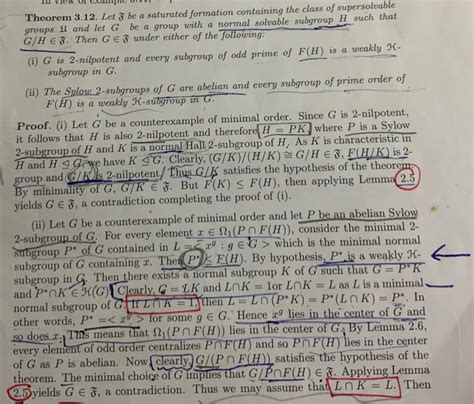 Theorem 3.12. Let 𝔉 be a saturated formation containing the class of supersolvable
groups 𝔘 and let G be a group with a normal solvable subgroup H such that
G/H ∈ 𝔉. Then G ∈ 𝔉 under either of the following:
(i) G is 2-nilpotent and every subgroup of odd prime of F(H) is a weakly ℋ-
subgroup in G.
(ii) The Sylow 2-subgroups of G are abelian and every subgroup of prime order of
F(H) is a weakly ℋ-subgroup in G.
Proof. (i) Let G be a counterexample of minimal order. Since G is 2-nilpotent,
it follows that H is also 2-nilpotent and therefore H = PK, where P is a Sylow
2-subgroup of H and K is a normal Hall 2-subgroup of H. As K is characteristic in
H and H ⊴ G, we have K ⊴ G. Clearly, (G/K)/(H/K) ≅ G/H ∈ 𝔉, F(H/K) is 2-
group and G/K is 2-nilpotent. Thus G/K satisfies the hypothesis of the theorem.
By minimality of G, G/K ∈ 𝔉. But F(K) ≤ F(H), then applying Lemma 2.5
yields G ∈ 𝔉, a contradiction completing the proof of (i).
(ii) Let G be a counterexample of minimal order and let P be an abelian Sylow
2-subgroup of G. For every element x ∈ Ω₁(P ∩ F(H)), consider the minimal 2-
subgroup P* of G contained in L = < xᵍ : g ∈ G > which is the minimal normal
subgroup of G containing x. Then P* ≤ F(H). By hypothesis, P* is a weakly ℋ-
subgroup in G. Then there exists a normal subgroup K of G such that G = P*K
and P* ∩ K ∈ ℋ(G). Clearly, G = LK and L∩K = 1or L∩K = L as L is a minimal
normal subgroup of G. If L∩K = 1, then L = L∩(P*K) = P*(L∩K) = P*. In
other words, P* =< xᵍ > for some g ∈ G. Hence xᵍ lies in the center of G and
so does x. This means that Ω₁(P∩F(H)) lies in the center of G. By Lemma 2.6,
every element of odd order centralizes P∩F(H) and so P∩F(H) lies in the center
of G as P is abelian. Now clearly, G/(P∩F(H)) satisfies the hypothesis of the
theorem. The minimal choice of G implies that G/P∩F(H) ∈ 𝔉. Applying Lemma
2.5 yields G ∈ 𝔉, a contradiction. Thus we may assume that L∩K = L. Then